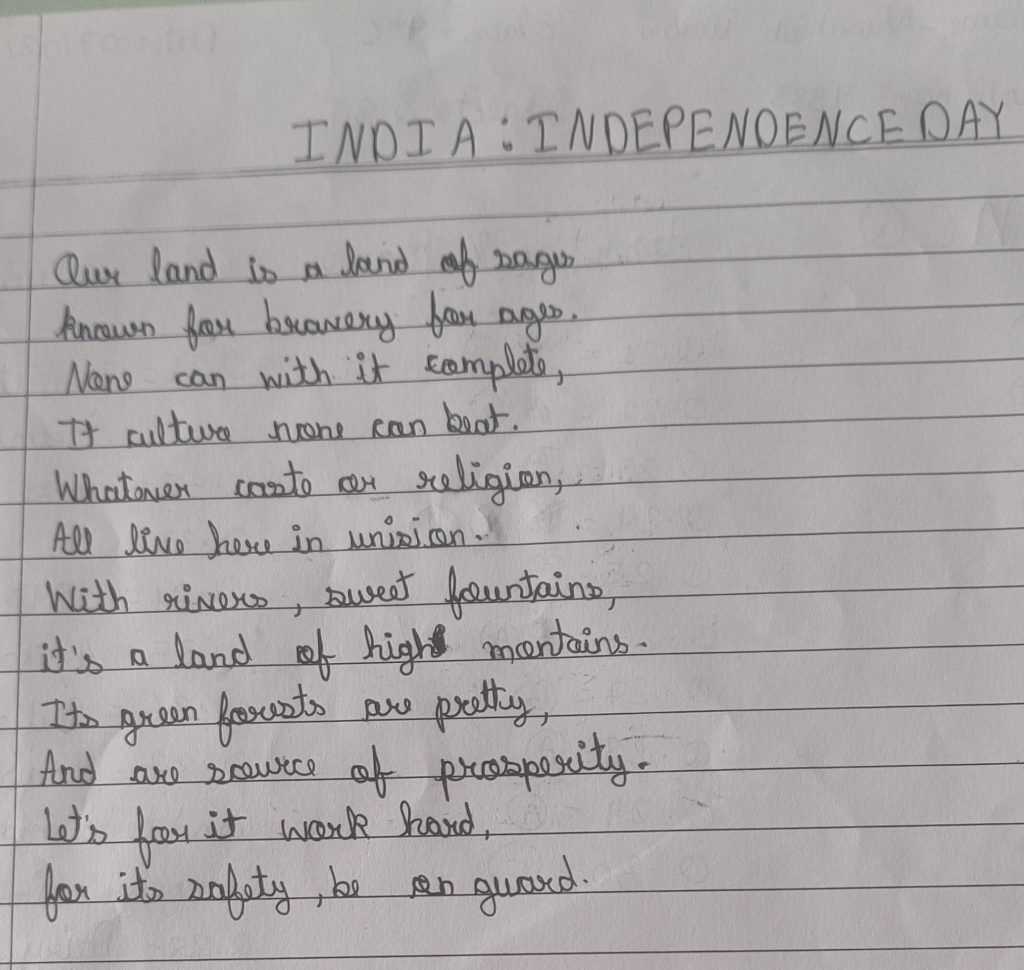 INDIA : INDEPENDENCE DAY
Our land is a land of sages
known for bravery for ages.
None can with it complete,
It culture none can beat.
Whatever caste or religion,
All live here in unision.
With rivers, sweet fountains,
it's a land of high montains.
Its green forests are pretty,
And are source of prosperity.
Let's for it work hard,
for its safety, be on guard.